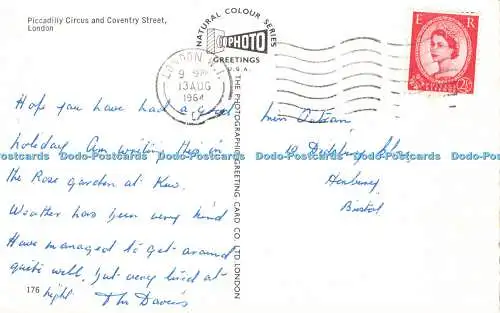 Piccadilly Circus and Coventry Street,
London
NATURAL COLOUR SERIES
PHOTO
GREETINGS
LONDON
9
13 AUG
1964
E R
THE PHOTOGRAPHIC GREETING CARD CO LTD LONDON
Hope you have had a good
holiday Am writing this in
the Rose garden at Kew.
Weather has been very kind
Have managed to get around
quite well, but very tired at
night.
176
Miss
10
Henbury
Bristol
Dodo-Postcards Dodo-Postcards Dodo-Postcards Dodo-Postcards Dodo-Postcards